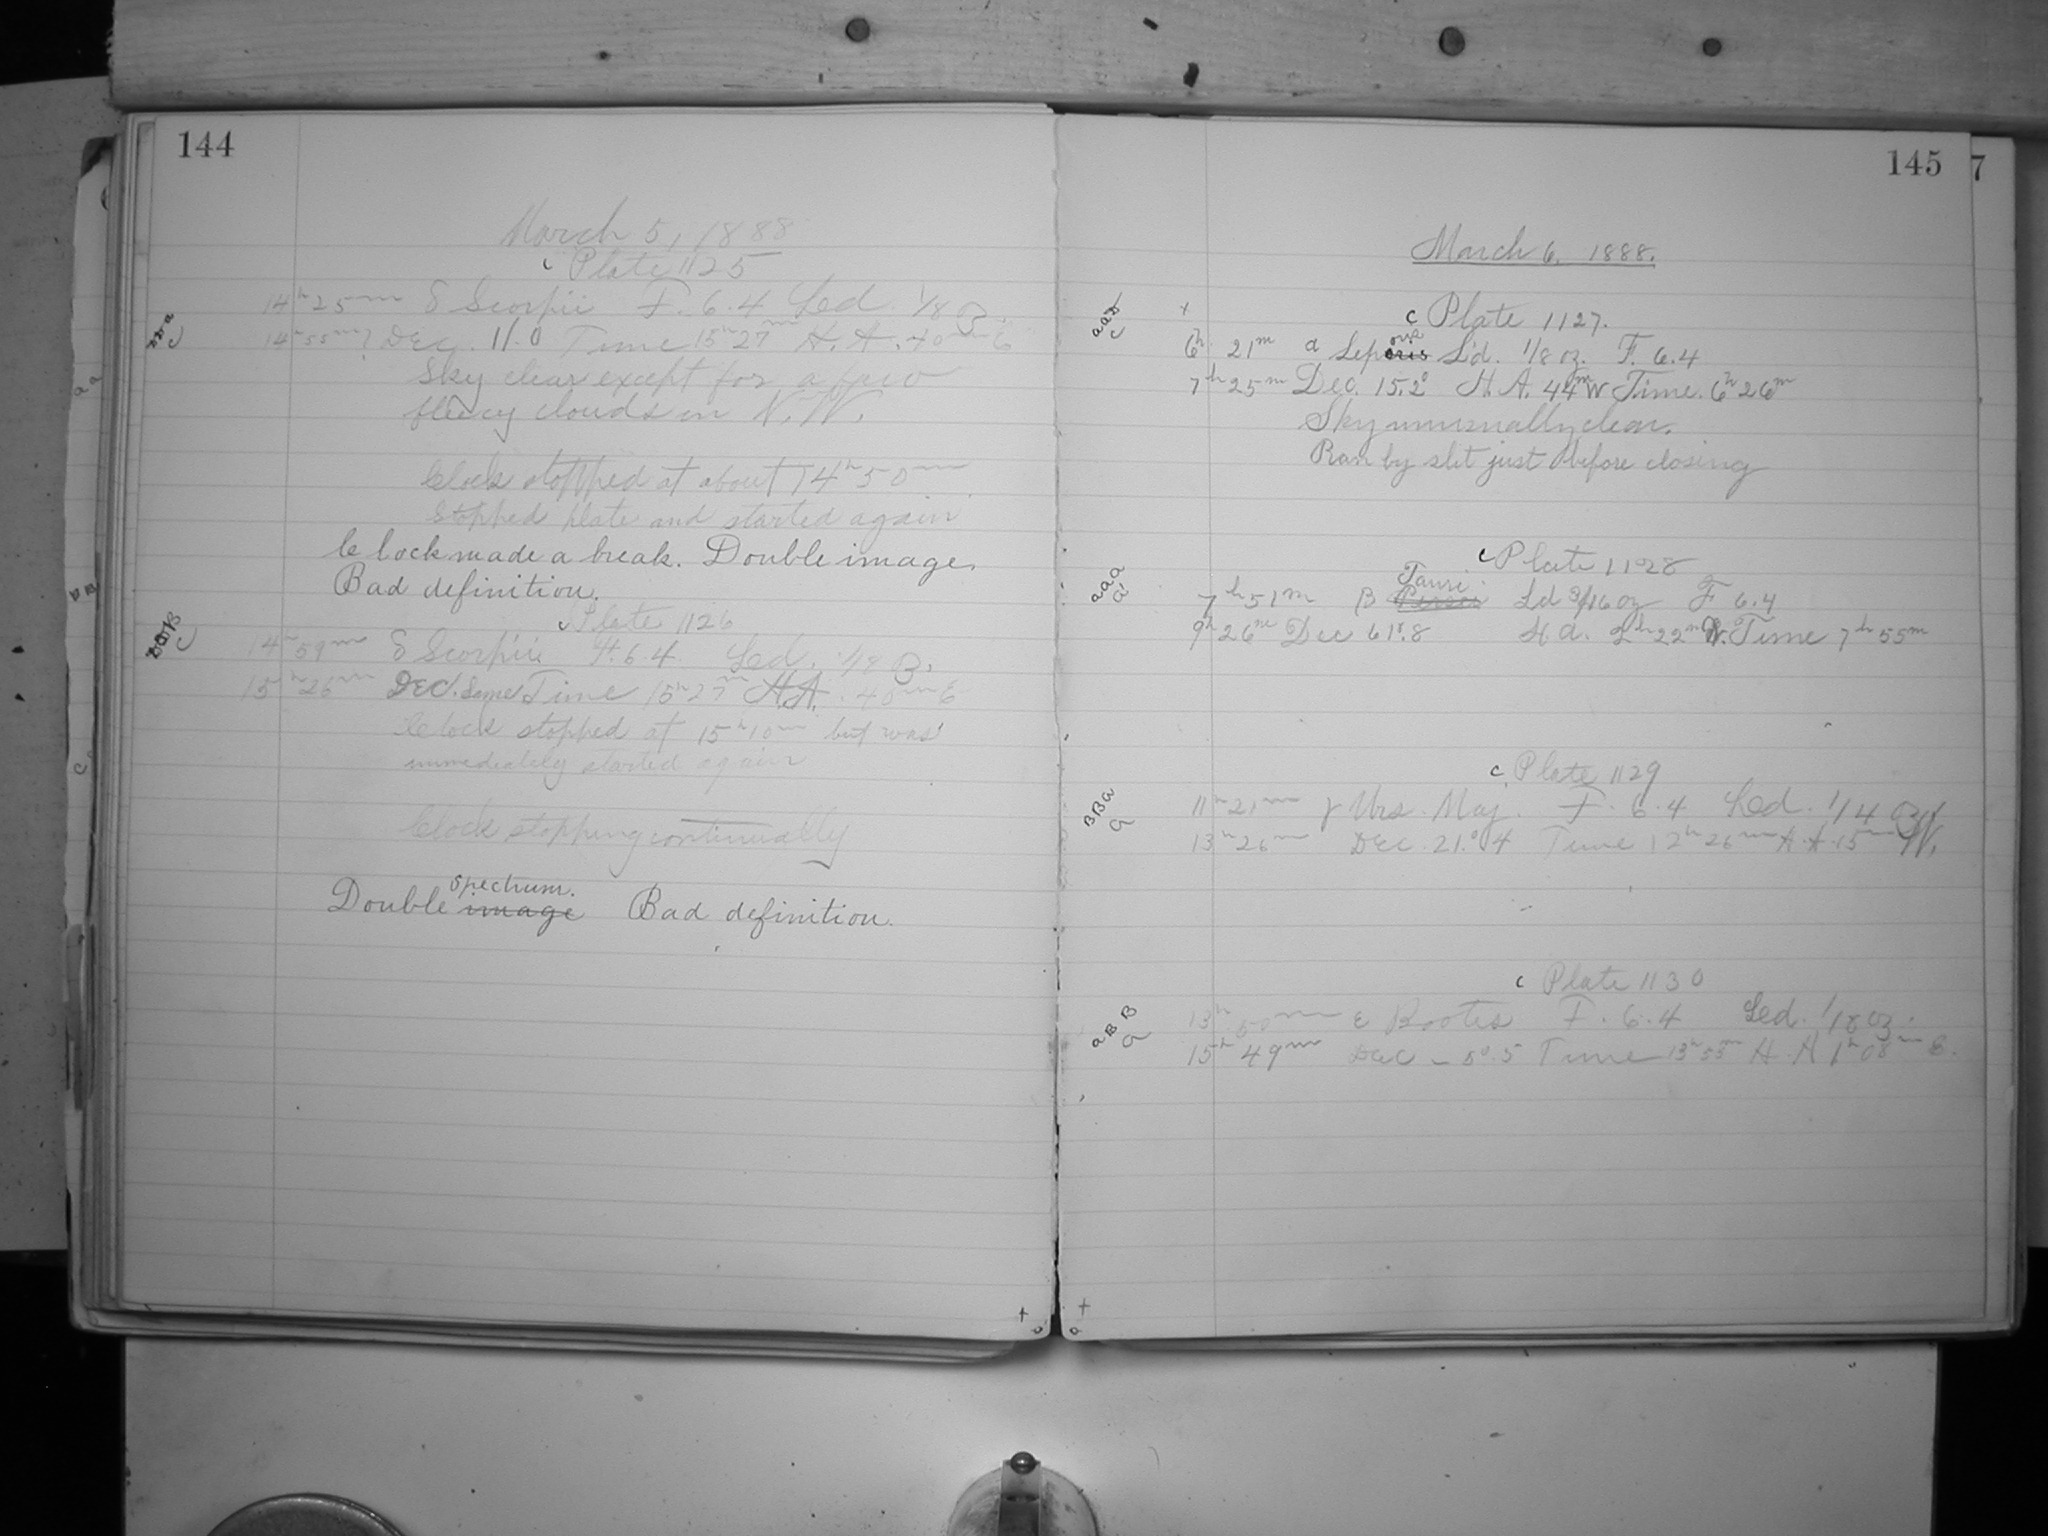 144
March 5, 1888
c Plate 1125
14h 25m δ Scorpii F. 6.4 Led. 1/8
14h 55m? Dec. 11.0 Time 15h 27m H. A. 40m E
Sky clear except for a few
fleecy clouds in N. W.
Clock stopped at about 14h 50m
Stopped plate and started again
Clock made a break. Double image.
Bad definition.
c Plate 1126
14h 59m δ Scorpii F. 6.4 Led. 1/8
15h 26m Dec. Same Time 15h 27m H.A. 40m E
Clock stopped at 15h 10m but was
immediately started again
Clock stopping continually
spectrum.
Double image Bad definition.
145
7
March 6, 1888.
c Plate 1127.
6h 21m α Leporis L'd. 1/8 oz. F. 6.4
7h 25m Dec. 15.2° H. A. 44m W Time. 6h 26m
Sky unusually clear.
Ran by slit just before closing
c Plate 1128
Tauri
7h 51m β Persei Ld 3/16 oz F 6.4
9h 26m Dec 61°.8 H a. 2h 22m W. Time 7h 55m
c Plate 1129
11h 21m γ Urs. Maj. F. 6.4 Led. 1/4 oz
13h 26m Dec. 21.°4 Time 12h 26m H. A. 15m W.
c Plate 1130
13h 50m ε Bootis F. 6.4 Led. 1/8 oz.
15h 49m Dec - 5°.5 Time 13h 55m H. A 1h 08m E.